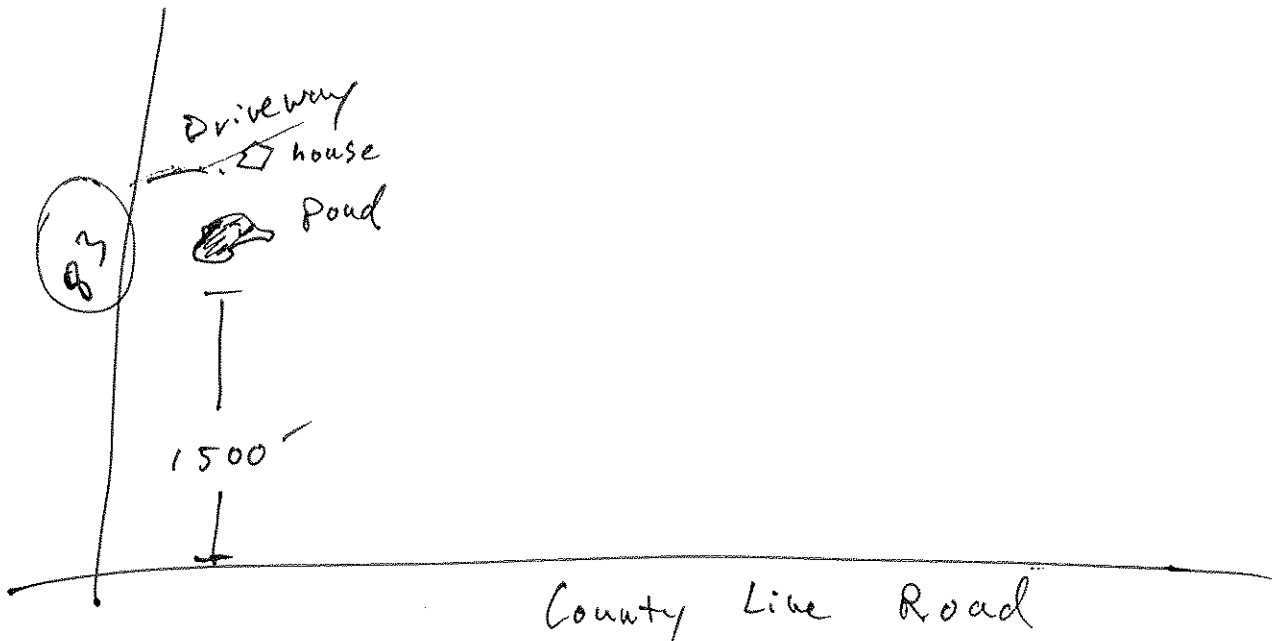 Driveway
house
Pond
83
1500'
County Line Road